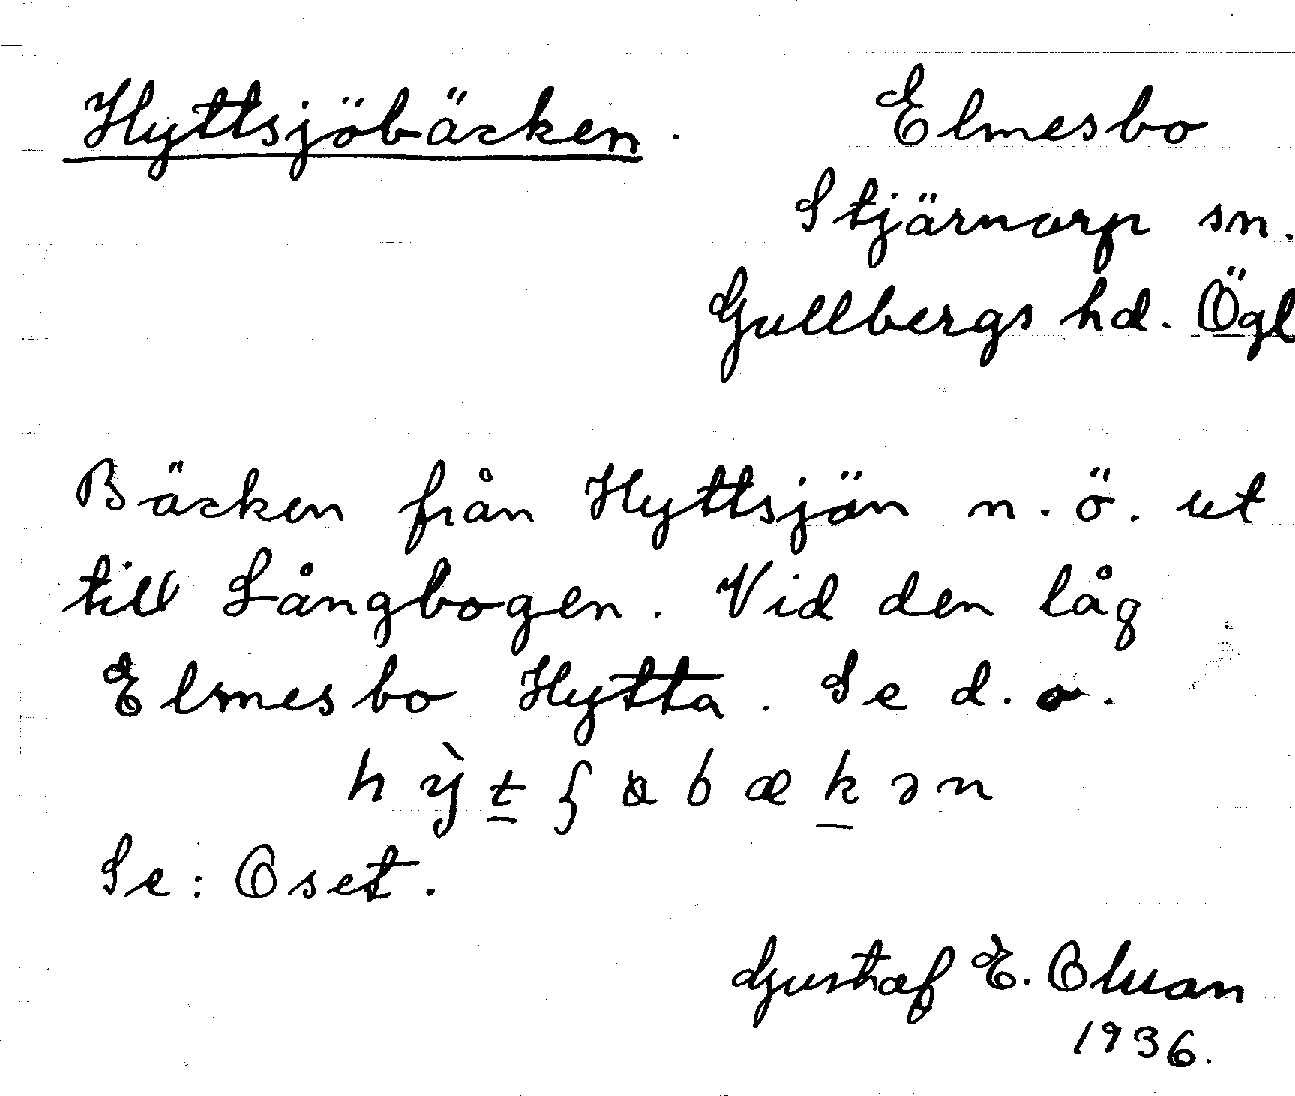 Hyttsjöbäcken.
Elmesbo
Stjärnorp sn.
Gullbergs hd. Ögl
Bäcken från Hyttsjön n.ö. ut
till Långbogen. Vid den låg
Elmesbo Hytta. Se d.o.
Se: Oset.
Gustaf E.
1936.